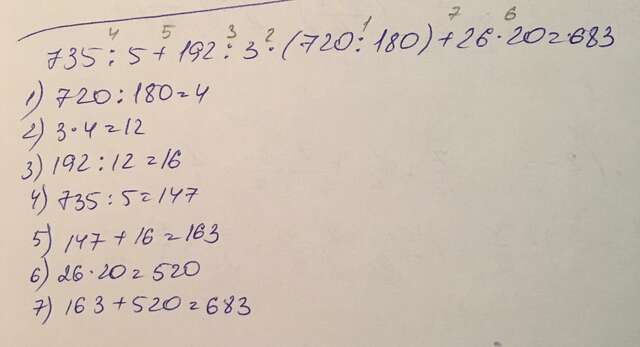 4 5 3 2 1 7 6
735 : 5 + 192 : 3 · (720 : 180) + 26 · 20 = 683
1) 720 : 180 = 4
2) 3 · 4 = 12
3) 192 : 12 = 16
4) 735 : 5 = 147
5) 147 + 16 = 163
6) 26 · 20 = 520
7) 163 + 520 = 683